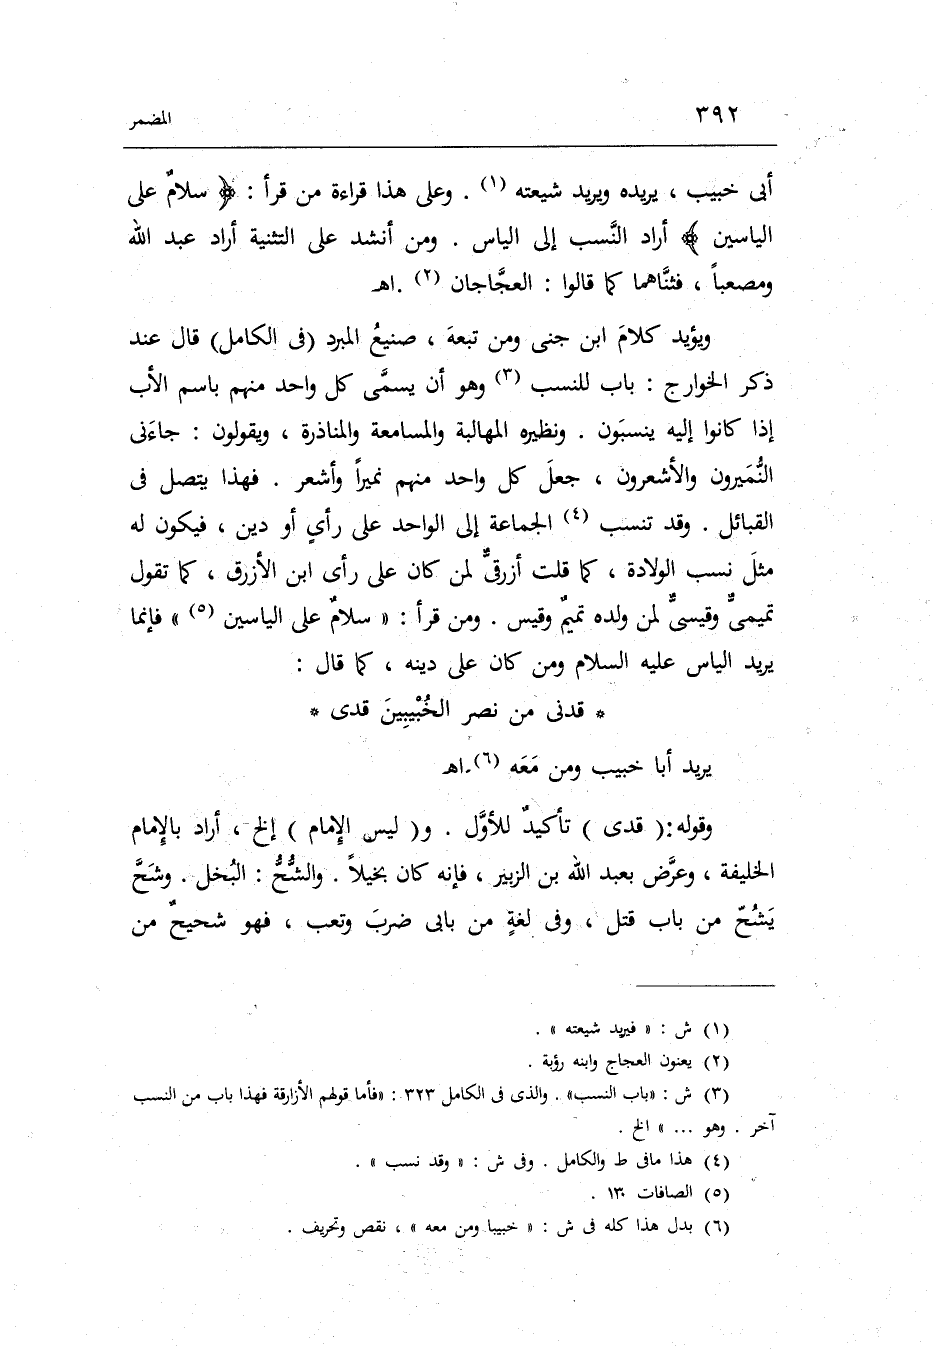 ٣٩٢ المضمر
أبى خبيب ، يريده ويريد شيعته (١) . وعلى هذا قراءة من قرأ : ﴿ سلامٌ على
الياسين ﴾ أراد النَّسب إلى الياس . ومن أنشد على التثنية أراد عبد الله
ومصعباً ، فثنَّاهما كما قالوا : العجَّاجان (٢) .اهـ
ويؤيد كلامَ ابن جنى ومن تبعهَ ، صنيعُ المبرد (فى الكامل) قال عند
ذكر الخوارج : باب للنسب (٣) وهو أن يسمَّى كل واحد منهم باسم الأب
إذا كانوا إليه ينسبَون . ونظيره المهالبة والمسامعة والمناذرة ، ويقولون : جاءَنى
النُّمَيرون والأشعرون ، جعلَ كل واحد منهم نميراً وأشعر . فهذا يتصل فى
القبائل . وقد تنسب (٤) الجماعة إلى الواحد على رأيٍ أو دين ، فيكون له
مثلَ نسب الولادة ، كما قلت أزرقىٌّ لمن كان على رأى ابن الأزرق ، كما تقول
تميمىٌّ وقيسىٌّ لمن ولده تميمٌ وقيس . ومن قرأ : « سلامٌ على الياسين (٥) » فإنما
يريد الياس عليه السلام ومن كان على دينه ، كما قال :
* قدنى من نصر الخُبْيبِينَ قدى *
يريد أبا خبيب ومن مَعَه (٦).اهـ
وقوله:( قدى ) تأكيدٌ للأوَّل . و( ليس الإمام ) إلخ ، أراد بالإمام
الخليفة ، وعرَّض بعبد الله بن الزبير ، فإنه كان بخيلاً . والشُّحُّ : البُخل . وشَحَّ
يَشُحّ من باب قتل ، وفى لغةٍ من بابى ضربَ وتعب ، فهو شحيحٌ من
(١) ش : « فيريد شيعته » .
(٢) يعنون العجاج وابنه رؤبة .
(٣) ش : «باب النسب» . والذى فى الكامل ٣٢٣ : «فأما قولهم الأزارقة فهذا باب من النسب
آخر . وهو ... » الخ .
(٤) هذا مافى ط والكامل . وفى ش : « وقد نسب » .
(٥) الصافات ١٣٠ .
(٦) بدل هذا كله فى ش : « خبيبا ومن معه » ، نقص وتحريف .